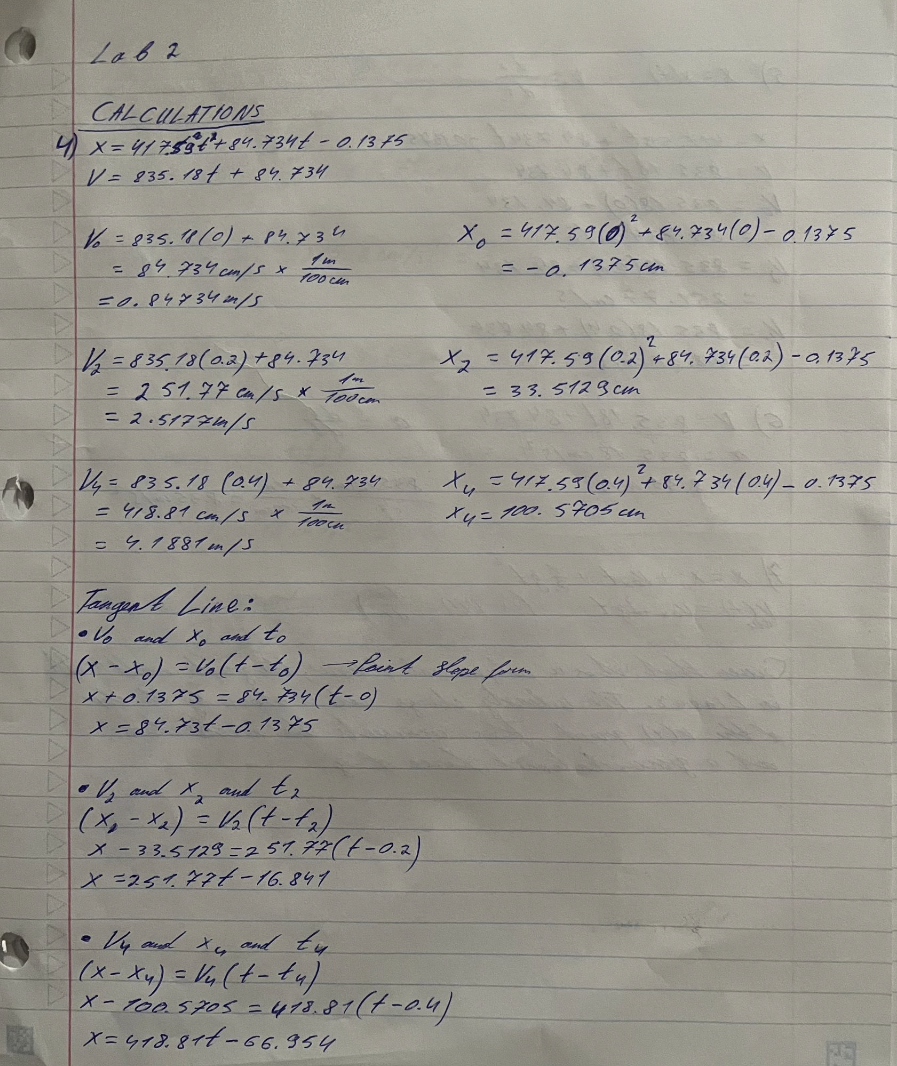 Lab 2
CALCULATIONS
4) x = 417.59t² + 84.734t - 0.1375
V = 835.18t + 84.734
V₀ = 835.18(0) + 84.734
= 84.734 cm/s × 1m/100cm
= 0.84734 m/s
X₀ = 417.59(0)² + 84.734(0) - 0.1375
= -0.1375cm
V₂ = 835.18(0.2) + 84.734
= 251.77 cm/s × 1m/100cm
= 2.5177 m/s
X₂ = 417.59(0.2)² + 84.734(0.2) - 0.1375
= 33.5129cm
V₄ = 835.18 (0.4) + 84.734
= 418.81 cm/s × 1m/100cm
= 4.1881 m/s
X₄ = 417.59(0.4)² + 84.734(0.4) - 0.1375
X₄ = 100.5705 cm
Tangent Line:
• V₀ and x₀ and t₀
(x - x₀) = V₀(t - t₀) → Point slope form
x + 0.1375 = 84.734(t - 0)
x = 84.73t - 0.1375
• V₂ and x₂ and t₂
(x - x₂) = V₂(t - t₂)
x - 33.5129 = 251.77(t - 0.2)
x = 251.77t - 16.841
• V₄ and x₄ and t₄
(x - x₄) = V₄(t - t₄)
x - 100.5705 = 418.81(t - 0.4)
x = 418.81t - 66.954